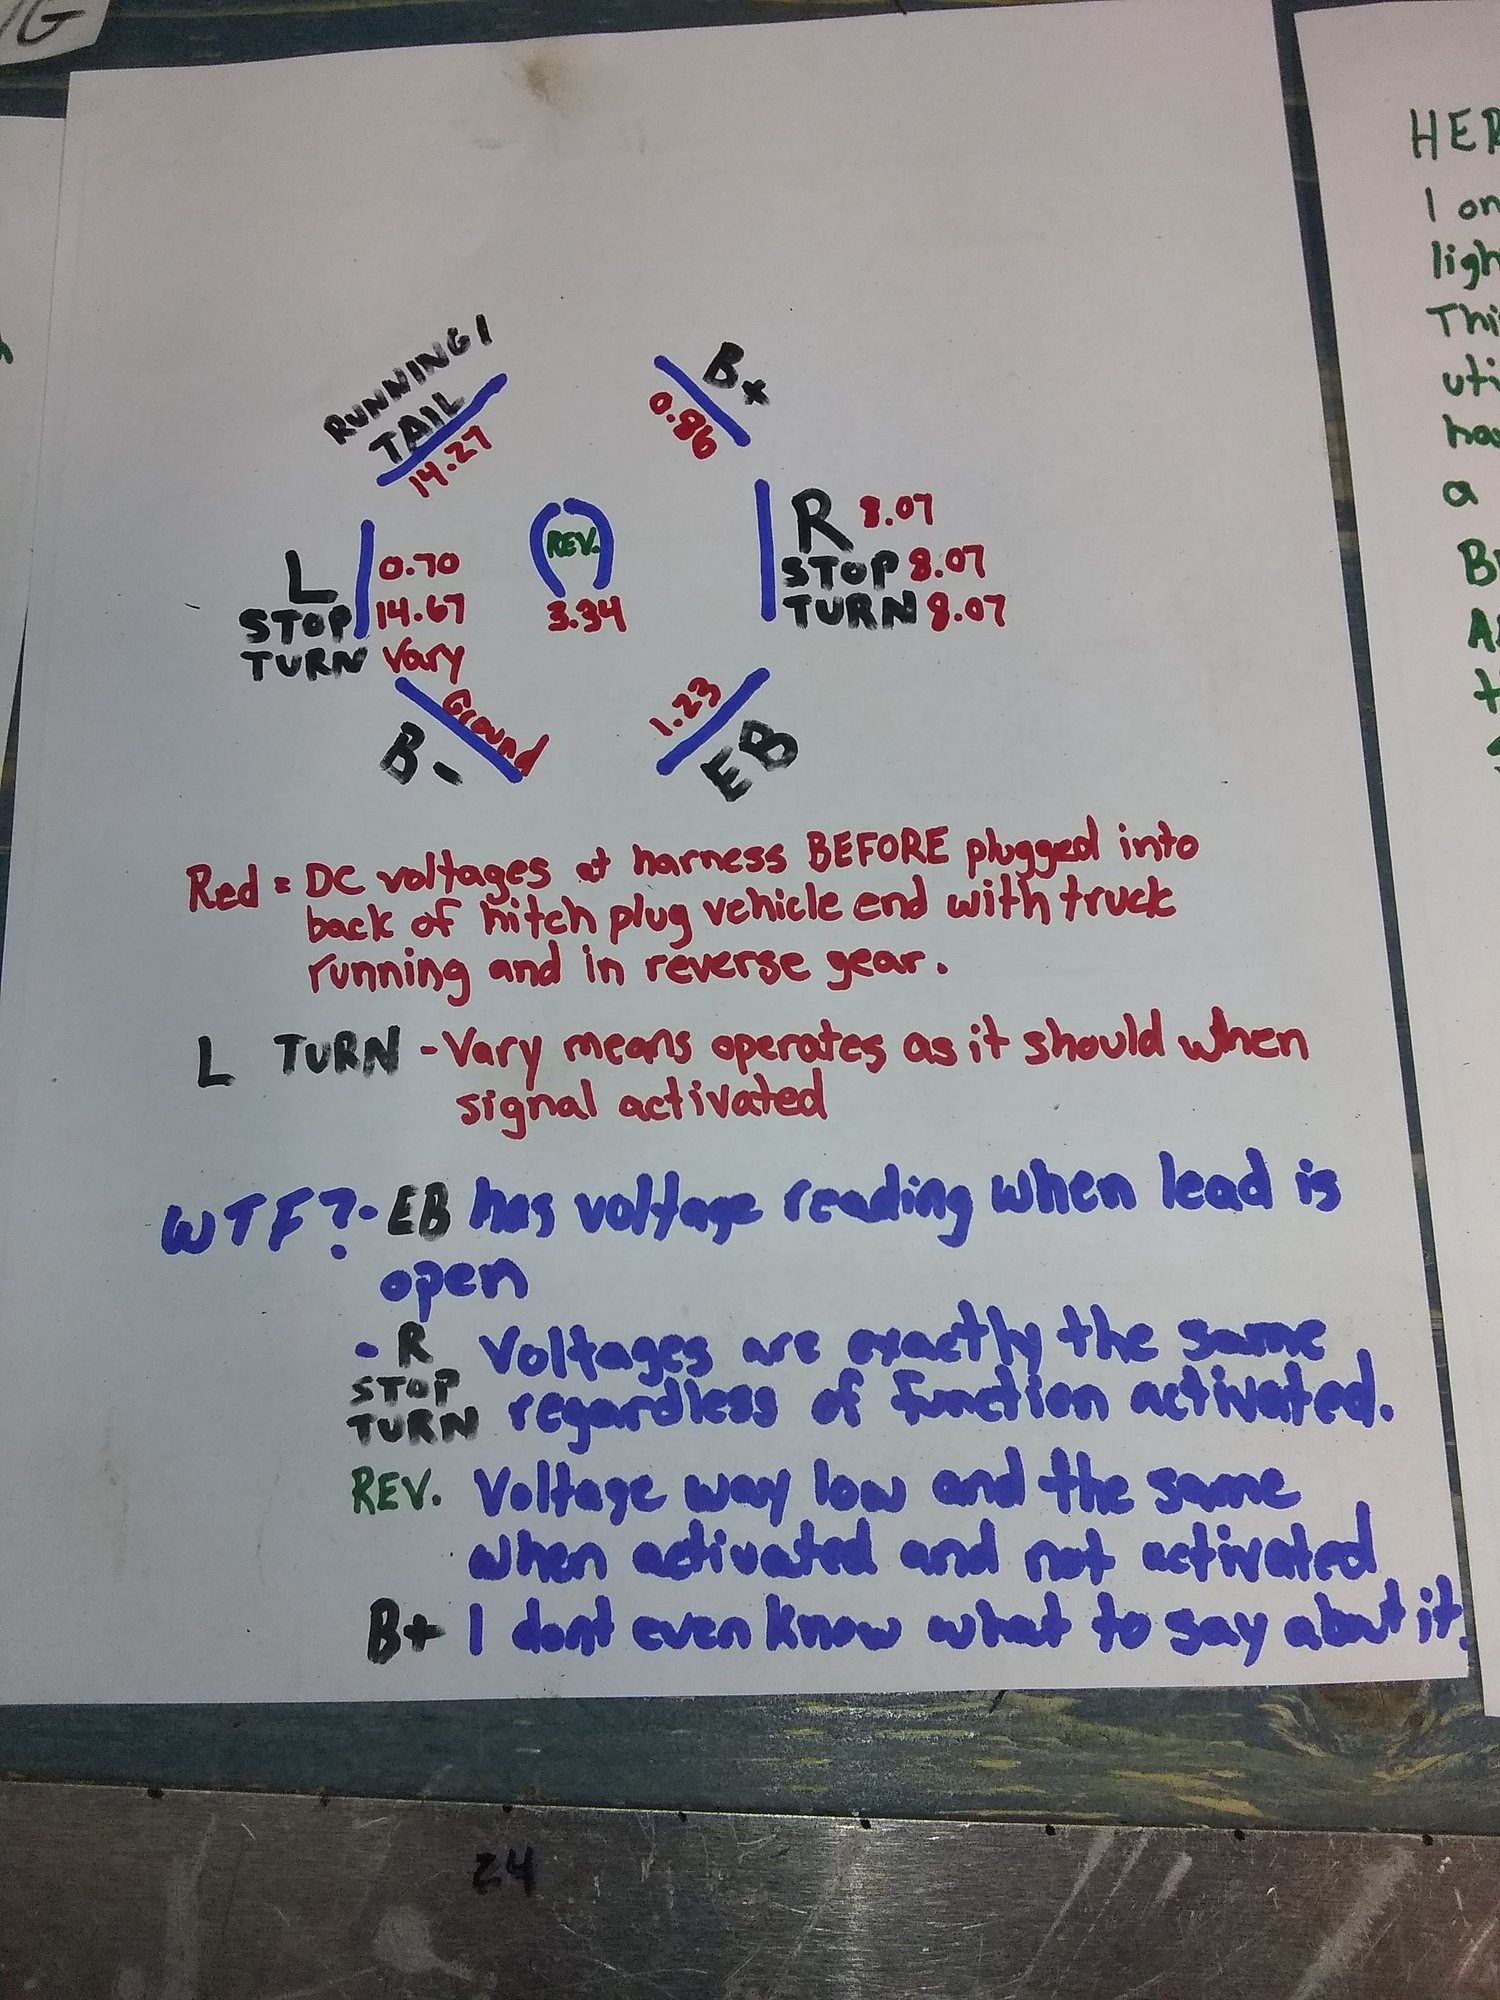 IG
RUNNING/
TAIL
14.27
B+
0.86
L
STOP
TURN
0.70
14.67
Vary
REV.
3.34
R 8.07
STOP 8.07
TURN 8.07
Ground
B-
1.23
EB
Red = DC voltages at harness BEFORE plugged into
back of hitch plug vehicle end with truck
running and in reverse gear.
L TURN - Vary means operates as it should when
signal activated
WTF? - EB has voltage reading when lead is
open
- R Voltages are exactly the same
STOP regardless of function activated.
TURN
REV. Voltage way low and the same
when activated and not activated
B+ I dont even know what to say about it.
24
HER
I on
ligh
Thi
uti
ha
a
B
A
t